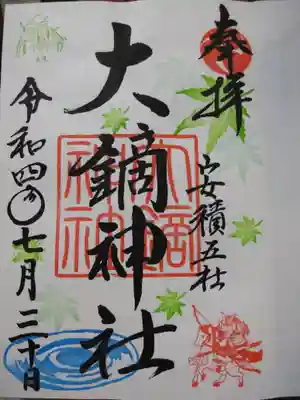 奉拝
安積五社
大鏑神社
令和四年七月二十日